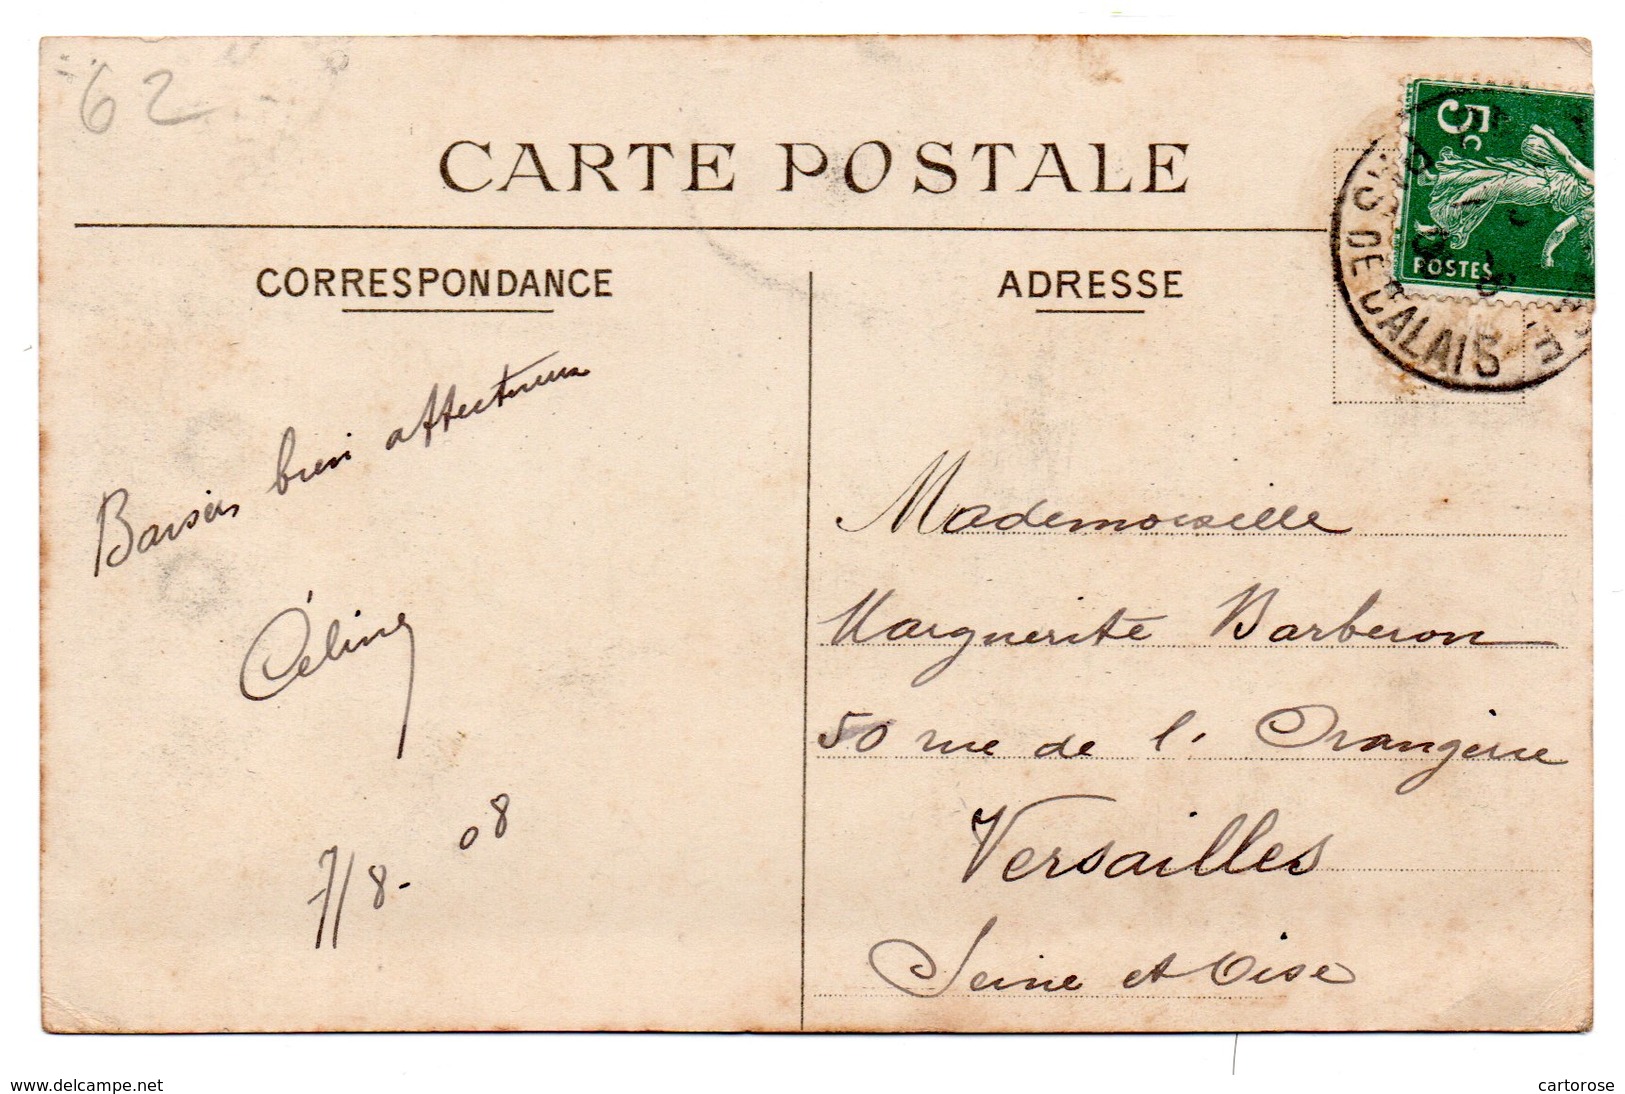 62
CARTE POSTALE
CORRESPONDANCE
Baisers bien affectueux
Céline
7/8-08
ADRESSE
5c
POSTES
S DE CALAIS
Mademoiselle
Marguerite Barberon
50 rue de l'Orangerie
Versailles
Seine et Oise
www.delcampe.net
cartorose